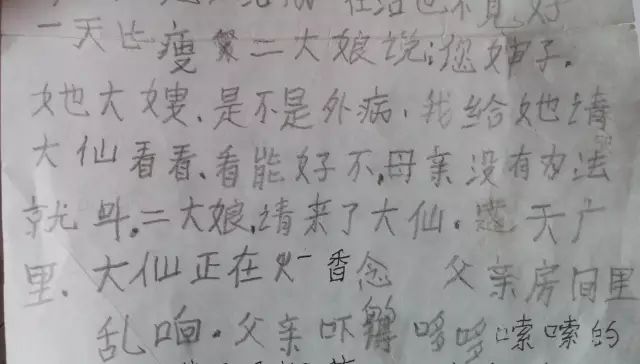 也不見好
一天比瘦 二大娘说:您婶子.
她大嫂.是不是外病.我给她请
大仙看看.看能好不,母亲没有办法
就叫.二大娘,请来了大仙. 天广
里.大仙正在 香念 父亲房间里
乱响.父亲吓 哆哆嗦嗦的